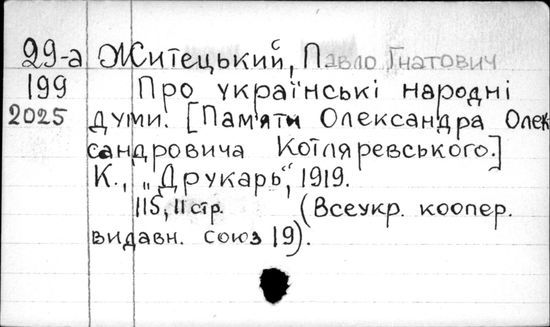 29-а Житецький, Павло Гнатович
199 Про українські народні
2025 думи. [Пам'яти Олександра Олек
сандровича Котляревського.]
К., „Друкарь", 1919.
115, II стр. (Всеукр. коопер.
видавн. союз 19).